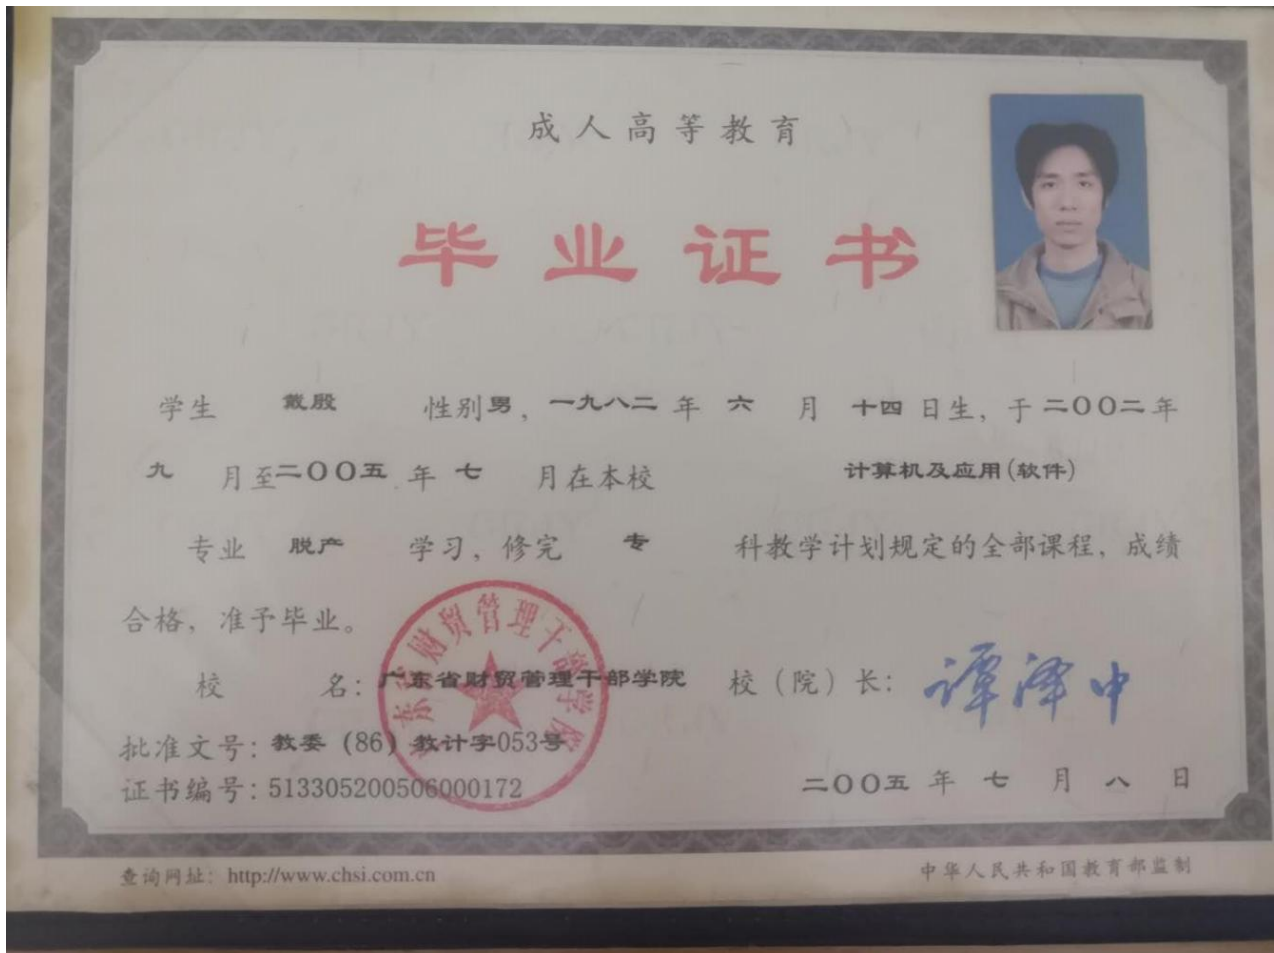 成人高等教育
毕业证书
学生 戴殷 性别男，一九八二年 六 月 十四日生，于二〇〇二年
九 月至二〇〇五年 七 月在本校 计算机及应用(软件)
专业 脱产 学习，修完 专 科教学计划规定的全部课程，成绩
合格，准予毕业。
校 名：广东省财贸管理干部学院 校（院）长：谭泽中
广东省财贸管理干部学院
批准文号：教委（86）教计字053号
证书编号：513305200506000172
二〇〇五年 七 月 八 日
查询网址：http://www.chsi.com.cn
中华人民共和国教育部监制